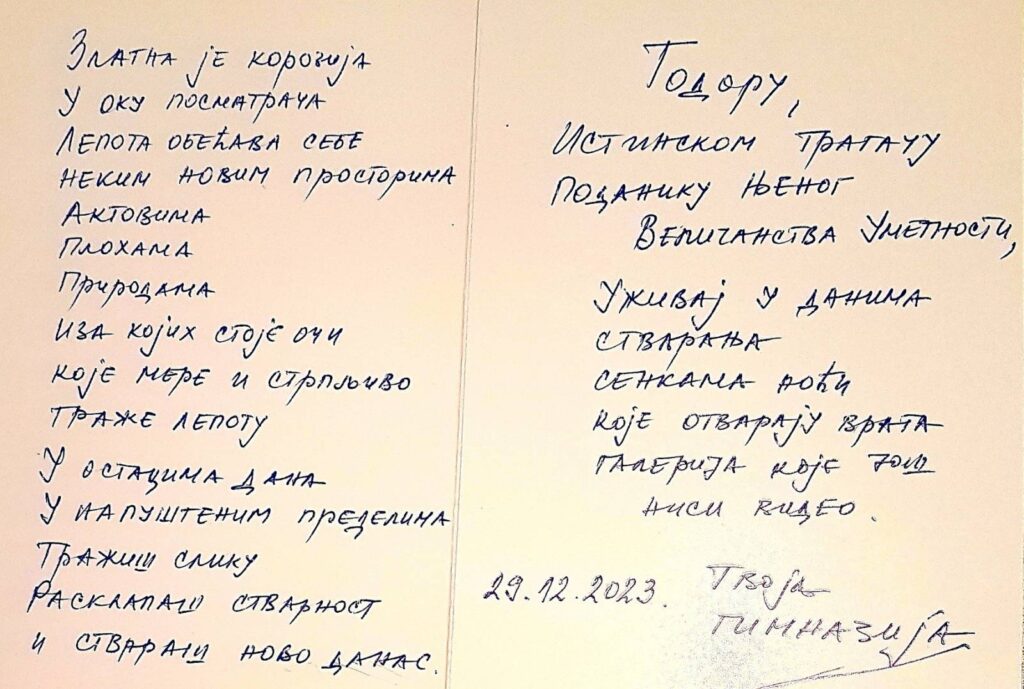 Златна је корозија
У оку посматрача
Лепота обећава себе
неким новим просторима
Актовима
Плохама
Природама
иза којих стоје очи
које мере и стрпљиво
траже лепоту
У остацима дана
У напуштеним пределима
Тражиш слику
Расклапаш стварност
и ствараш ново данас.
Тодору,
Истинском трагачу
Поданику њеног
Величанства Уметности,
Уживај у данима
стварања
сенкама ноћи
које отварају врата
галерија које још
ниси видео.
29.12.2023.
Твоја
гимназија